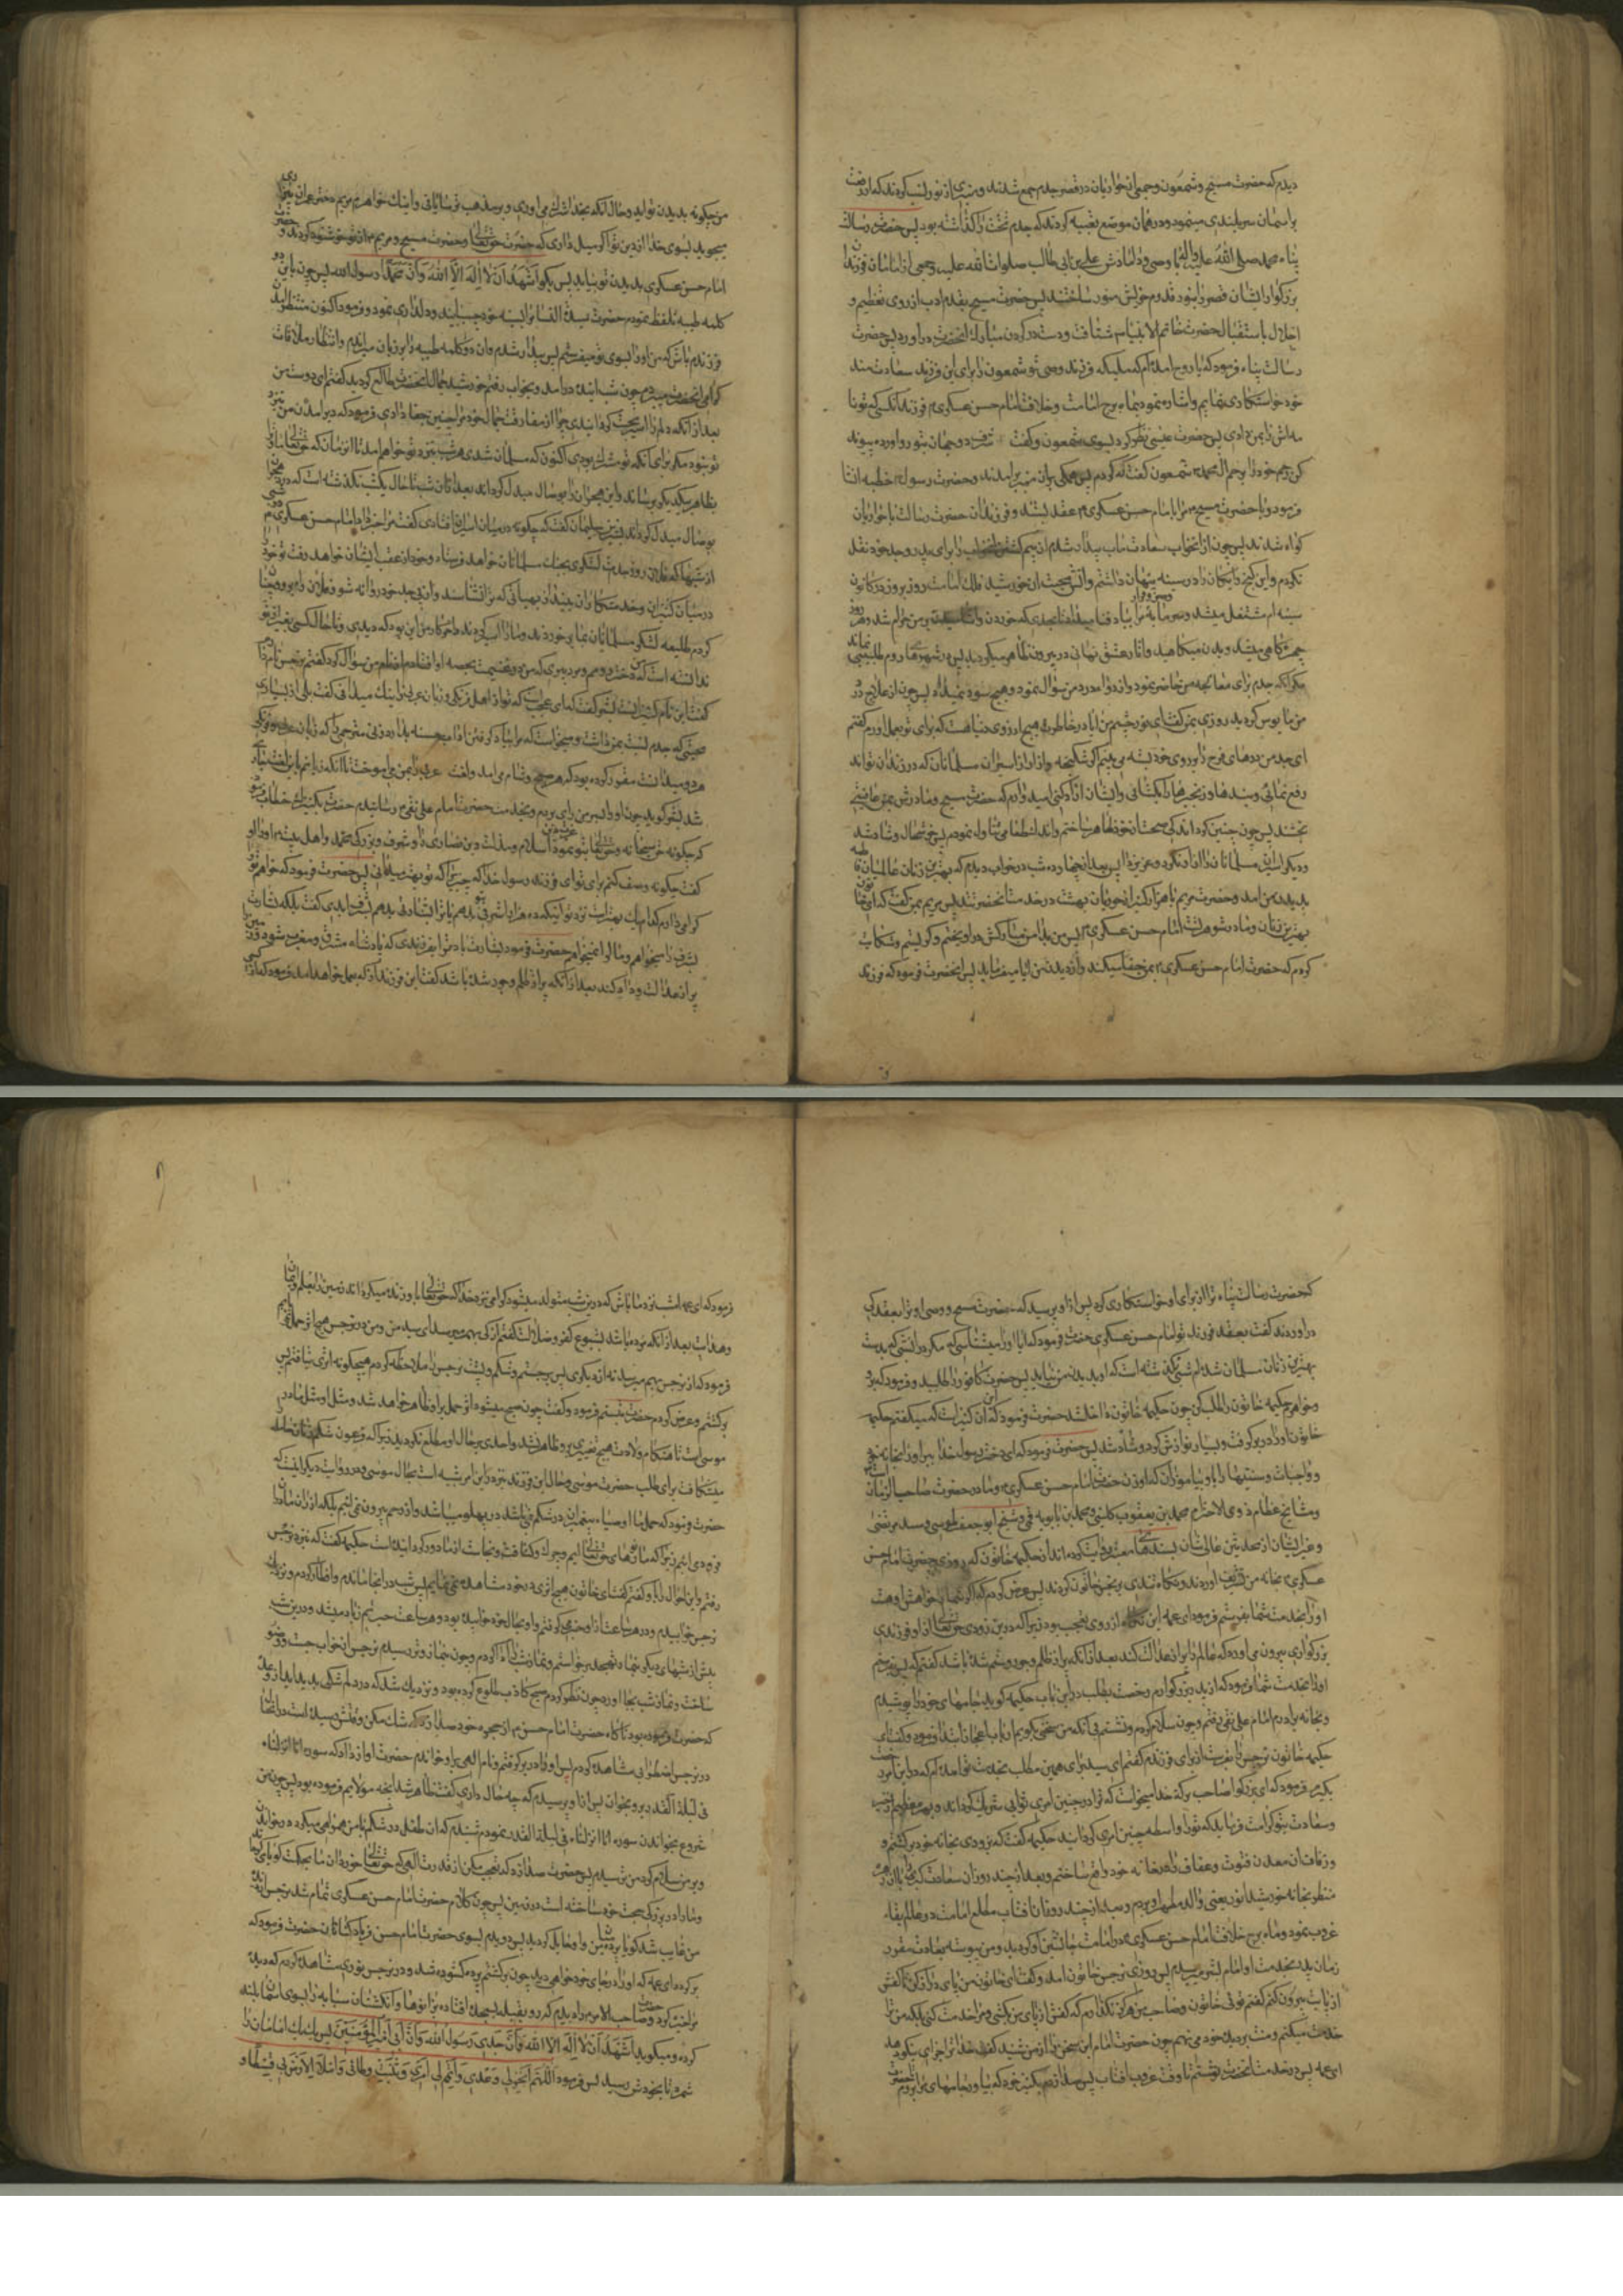 دیدم که حضرت مسیح و شمعون و جمعی از حواریان در قصر جدم جمع شدند و منبری از نور نصب کردند که از رفعت
بر آسمان سربلندی مینمود و در همان موضع تعبیه کردند که جدم تخت را گذاشته بود پس حضرت رسالت
پناه محمد صلی الله علیه واله با وصی و دامادش علی بن ابی طالب صلوات الله علیه و جمعی از امامان و فرزندان
بزرگوار ایشان قصر را بنور قدوم خویش منور ساختند پس حضرت مسیح بقدم ادب از روی تعظیم و
اجلال باستقبال حضرت خاتم الانبیا شتافت و دست در گردن مبارک آنحضرت در آورد پس حضرت
رسالت پناه فرمود که یا روح الله آمده ام که ملیکه فرزند وصی تو شمعون را برای این فرزند سعادتمند
خود خواستکاری نمایم و اشاره نمود بماه برج امامت و خلافت امام حسن عسکری فرزند آنکسی که تو نا
مه اش را بمن دادی پس حضرت عیسی نظر کرد بسوی شمعون و گفت شرف دو جهان بتو رو آورده پیوند
کن رحم خود را برحم ال محمد شمعون گفت که کردم پس همگی بران منبر برآمدند و حضرت رسول خطبه انشا
فرمود و با حضرت مسیح مرا بامام حسن عسکری عقد بستند و فرزندان حضرت رسالت با حواریان
گواه شدند پس چون از آنخواب سعادت مآب بیدار شدم از بیم کشتن آنخواب را برای پدر و جد خود نقل
نکردم و این گنج رایگان را در سینه پنهان داشتم و آتش محبت آن خورشید فلک امامت روز بروز در کانون
سینه ام مشتعل میشد و سرمایه صبر و قرار مرا بباد فنا میداد تا بحدی که خوردن و آشامیدن بر من حرام شد و هر روز
چهره کاهی میشد و بدن میکاهید و آثار عشق نهانی در بیرون ظاهر میگردید پس در شهرهای روم طبیبی نماند
مگر آنکه جدم برای معالجه من حاضر نمود و از دوای درد من سؤال نمود و هیچ سود نمیداد پس چون از علاج درد
من مأیوس گردید روزی بمن گفت ای نور چشم من آیا در خاطرت هیچ آرزوی دنیا هست که برای تو بعمل آورم گفتم
ای جد من درهای فرج را بر روی خود بسته می بینم اگر شکنجه و آزار از اسیران مسلمانان که در زندان تواند
رفع نمائی و بندها و زنجیرها را بگشائی و ایشان را آزاد کنی امیدوارم که حضرت مسیح و مادرش بمن عافیتی
بخشند پس چون چنین کرد اندکی صحت از خود ظاهر ساختم و اندک طعامی تناول نمودم پس خوشحال و شاد شد
و دیگر اسیران مسلمانان را آزاد کرد و عزیز داشت پس بعد از چهارده شب در خواب دیدم که بهترین زنان عالمیان فاطمه
بدیدن من آمد و حضرت مریم با هزار کنیز از حوریان بهشت در خدمت آنحضرتند پس مریم بمن گفت که این خاتون
بهترین زنان و مادر شوهر تست امام حسن عسکری پس من بدامن مبارکش در آویختم و گریستم و شکایت
کردم که حضرت امام حسن عسکری بمن جفا میکند و از دیدن من ابا مینماید پس آنحضرت فرمود که فرزند
من چگونه بدیدن تو اید و حال آنکه بخدا شرک می آوری و بر مذهب ترسایانی و اینک خواهرم مریم دختر عمران بیزاری
میجوید بسوی خدا از دین تو اگر میل داری که حضرت حق تعالی و حضرت مسیح و مریم از تو خوشنود گردند و حضرت
امام حسن عسکری بدیدن تو بیاید پس بگو اشهد ان لا اله الا الله وان محمدا رسول الله پس چون باین دو
کلمه طیبه تلفظ نمودم حضرت سیدة النساء مرا بسینه خود چسبانید و دلداری نمود و فرمود اکنون منتظر آمدن
فرزندم باش که من او را بسوی تو میفرستم پس بیدار شدم و آن دو کلمه طیبه را بر زبان میراندم و انتظار ملاقات
گرامی آنحضرت میبردم چون شب آینده در آمد و بخواب رفتم خورشید جمال آنحضرت طالع گردید گفتم ای دوست من
بعد از آنکه دلم را اسیر محبت گردانیدی چرا از مفارقت جمال خود مرا چنین جفا دادی فرمود که دیر آمدن من بنزد
تو نبود مگر برای آنکه تو مشرک بودی اکنون که مسلمان شدی هر شب بنزد تو خواهم آمد تا آنزمان که حق تعالی ما و ترا
بظاهر بیکدیگر برساند و این هجران را بوصال مبدل گرداند بعد از آن شب تا حال یکشب نگذشته است که درد هجران مرا
بوصال مبدل نگرداند بشر بن سلیمان گفت که چگونه در میان اسیران افتادی گفت مرا خبر داد امام حسن عسکری در شبی
از شبها که فلان روز جدت لشکری بجنک مسلمانان خواهد فرستاد و خود از عقب ایشان خواهد رفت تو خود را
در میان کنیزان و خدمتکاران بینداز بهیأتی که ترا نشناسند و از پی جد خود روانه شو و از فلان راه برو و چنان
کردم طلیعه لشکر مسلمانان بما بر خوردند و ما را اسیر کردند و آخر کار من این بود که دیدی و تا حال کسی بغیر از تو
ندانسته است که من دختر پادشاه رومم و مرد پیری که من در غنیمت بحصه او افتادم از نام من سؤال کرد گفتم نرجس نام دارم
گفت این نام کنیزانست بشر گفت که ای عجب که تو از اهل فرنگی و زبان عربی را نیک میدانی گفت بلی از بسیاری
محبتی که جدم نسبت بمن داشت و میخواست که مرا بیاد گرفتن آداب حسنه بدارد زنی مترجمی را که زبان عربی و فرنگی
هر دو میدانست مقرر کرده بود که هر صبح و شام می آمد و لغت عربی بمن می آموخت تا آنکه زبانم باین لغت جاری
شد بشر گوید چون او را بسرمن رای بردم و بخدمت حضرت امام علی نقی رسانیدم حضرت بکنیزک خطاب فرمود
که چگونه حق سبحانه و تعالی بتو نمود عزت دین اسلام و مذلت دین نصاری را و شرف و بزرگی محمد و اهل بیت او را
گفت چگونه وصف کنم برای تو ای فرزند رسول خدا که چیزی را که تو بهتر میدانی پس حضرت فرمود که خواهم ترا
گرامی دارم کدام یک بهتر است نزد تو اینکه ده هزار اشرفی بتو بدهم یا ترا بشارتی بدهم بشرف ابدی گفت بلکه بشارت
بشرف را میخواهم و مال را نمیخواهم حضرت فرمود بشارت باد ترا بفرزندی که پادشاه مشرق و مغرب شود و زمین را
پر از عدالت و داد کند بعد از آنکه پر از ظلم و جور شده باشد گفت این فرزند از که بعمل خواهد آمد فرمود که از آن کسی
که حضرت رسالت پناه ترا از برای او خواستکاری کرد پس از او پرسید که حضرت مسیح و وصی او ترا بعقد کی
در آوردند گفت بعقد فرزند تو امام حسن عسکری حضرت فرمود که آیا او را میشناسی گفت مگر از آن شبی که بدست
بهترین زنان مسلمان شده ام شبی گذشته است که او بدیدن من نیاید پس حضرت کافور را طلبید و فرمود که برو
و خواهرم حکیمه خاتون را طلب کن چون حکیمه خاتون داخل شد حضرت فرمود که این آن کنیز است که میگفتم حکیمه
خاتون او را در بر گرفت و بسیار نوازش کرد و شاد شد پس حضرت فرمود که ای دختر رسول خدا ببر او را بخانه خود
و واجبات و سنتها را باو بیاموز که او زن حضرت امام حسن عسکری و مادر حضرت صاحب الزمان است
و مشایخ عظام ذوی الاحترام محمد بن یعقوب کلینی و محمد بن بابویه قمی و شیخ ابو جعفر طوسی و سید مرتضی
و غیر ایشان از محدثین عالی شان بسندهای معتبر روایت کرده اند از حکیمه خاتون که روزی حضرت امام حسن
عسکری بخانه من تشریف آوردند و نگاه تندی بر نرجس خاتون کردند پس عرض کردم که اگر شما را خواهش هست
او را بخدمت شما بفرستم فرمود ای عمه این نگاه از روی تعجب بود زیرا که در این زودی حق تعالی از او فرزندی
بزرگواری بیرون می آورد که عالم را پر از عدالت کند بعد از آنکه پر از ظلم و جور و ستم شده باشد گفتم که پس بفرستم
او را بخدمت شما فرمود که از پدر بزرگوارم رخصت بطلب در این باب حکیمه گوید جامهای خود را پوشیدم
و بخانه برادرم امام علی نقی رفتم و چون سلام کردم و نشستم بی آنکه من سخنی بگویم از باب اعجاز ابتدا فرمود و گفت ای
حکیمه خاتون نرجس را بفرست از برای فرزندم گفتم ای سید برای همین مطلب بخدمت تو آمده ام که در این امر رخصت
بگیرم فرمود که ای بزرگوار صاحب برکت خدا میخواست که ترا در چنین امری ثوابی شریک گرداند و بهره عظیم از خیر
و سعادت بتو کرامت فرماید که ترا واسطه چنین امری گردانید حکیمه گفت که بزودی بخانه خود برگشتم و
و زفاف آن معدن فتوت و عفاف را در خانه خود واقع ساختم و بعد از چند روز آن سعد اکبر را با آن زهره
منظر بخانه خورشید انور یعنی والد مطهر او بردم و بعد از چند روز آن آفتاب مطلع امامت در عالم بقاء
غروب نمود و ماه برج خلافت امام حسن عسکری در امامت جانشین او گردید و من پیوسته بعادت مقرر
زمان پدر بخدمت او امام بشر میرسیدم پس روزی نرجس خاتون آمد و گفت ای خاتون من پای دراز کن تا کفش
از پایت بیرون کنم گفتم توئی خاتون و صاحب من هرگز نگذارم که کفش از پای من بکشی و مرا خدمت کنی بلکه من ترا
خدمت میکنم و منت بر دیده خود می نهم چون حضرت امام این سخن را از من شنید گفت خدا ترا جزای نیکو دهد
ای عمه پس در خدمت آنحضرت نشستم تا وقت غروب آفتاب پس صدا زدم بکنیز خود که بیاور جامهای مرا تا بروم حضرت
فرمود که ای عمه امشب نزد ما باش که در این شب متولد میشود گرامی نزد خدا که حق تعالی باو زنده میگرداند زمین را بعلم و ایمان
و هدایت بعد از آنکه مرده باشد بشیوع کفر و ضلالت گفتم از کی بهم میرسد ای سید من و من در نرجس هیچ اثر حمل نمی یابم
فرمود که از نرجس بهم میرسد نه از دیگری پس برجستم و شکم و پشت نرجس را ملاحظه کردم هیچگونه اثری نیافتم پس
برگشتم و عرض کردم حضرت تبسم فرمود و گفت چون صبح میشود اثر حمل بر او ظاهر خواهد شد و مثل او مثل مادر
موسی است تا هنگام ولادت هیچ تغییری بر او ظاهر نشد و احدی بر حال او مطلع نگردید زیرا که فرعون شکم زنان حامله
میشکافت برای طلب حضرت موسی و حال این فرزند نیز در این امر شبیه است بحال موسی و در روایت دیگر اینست که
حضرت فرمود که حمل ما اوصیاء پیغمبران در شکم نمی باشد در پهلو میباشد و از رحم بیرون نمی آئیم بلکه از ران مادران
فرود می آئیم زیرا که ما نورهای حق تعالی ایم و چرک و کثافت و نجاست از ما دور گردانیده است حکیمه گفت که نزد نرجس
رفتم و این احوال را باو گفتم گفت ای خاتون هیچ اثری در خود مشاهده نمی نمایم پس شب در آنجا ماندم و افطار کردم و نزدیک
نرجس خوابیدم و در هر ساعت از او خبر می گرفتم و او بحال خود خوابیده بود و هر ساعت حیرتم زیاده میشد و در این شب
بیش از شبهای دیگر بنماز تهجد برخاستم و نماز شب ادا کردم و چون بنماز وتر رسیدم نرجس از خواب جست و وضو
ساخت و نماز شب بجا آورد چون نظر کردم صبح کاذب طلوع کرده بود و نزدیک شد که در دلم شکی پدید آید از وعده
که حضرت فرموده بود ناگاه حضرت امام حسن از حجره خود صدا زد که شک مکن وقتش رسیده است در اینحال
در نرجس اضطرابی مشاهده کردم پس او را در بر گرفتم و نام الهی بر او خواندم حضرت آواز داد که سوره انا انزلناه
فی لیلة القدر بر او بخوان پس از او پرسیدم که چه حال داری گفت ظاهر شد آنچه مولایم فرموده بود پس چون من
شروع بخواندن سوره انا انزلناه فی لیلة القدر نمودم شنیدم که آن طفل در شکم با من همراهی میکرد در خواندن
و بر من سلام کرد من ترسیدم پس حضرت صدا زد که تعجب مکن از قدرت الهی که حق تعالی خوردان ما را بحکمت گویا میگرداند
و ما را در بزرگی حجت خود ساخته است در زمین پس چون کلام حضرت امام حسن عسکری تمام شد نرجس از دیده
من غایب شد گویا پرده میان من و او حایل گردید پس دویدم بسوی حضرت امام حسن فریاد کنان حضرت فرمود که
برگرد ای عمه که او را در جای خود خواهی دید چون برگشتم پرده گشوده شد و در نرجس نوری مشاهده کردم که دیده
مرا خیره کرد و حضرت صاحب الامر را دیدم که رو بقبله بسجده افتاده بزانوها و انگشتان سبابه را بسوی آسمان بلند
کرده و میگوید اشهد ان لا اله الا الله وان جدی رسول الله وان ابی امیر المؤمنین پس یک یک امامان را
شمرد تا بخودش رسید پس فرمود اللهم انجز لی وعدی واتمم لی امری وثبت وطأتی واملأ الارض بی قسطا و